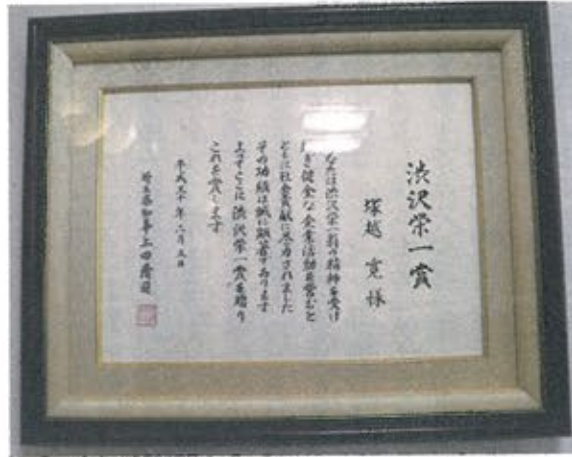 渋沢栄一賞
塚越 寛 様
なたは渋沢栄一翁の精神を受け
継ぎ健全な企業活動を営むと
ともに社会貢献に尽力されました
その功績は誠に顕著であります
よってここに渋沢栄一賞を贈り
これを賞します
平成二十年二月五日
埼玉県知事 上田清司